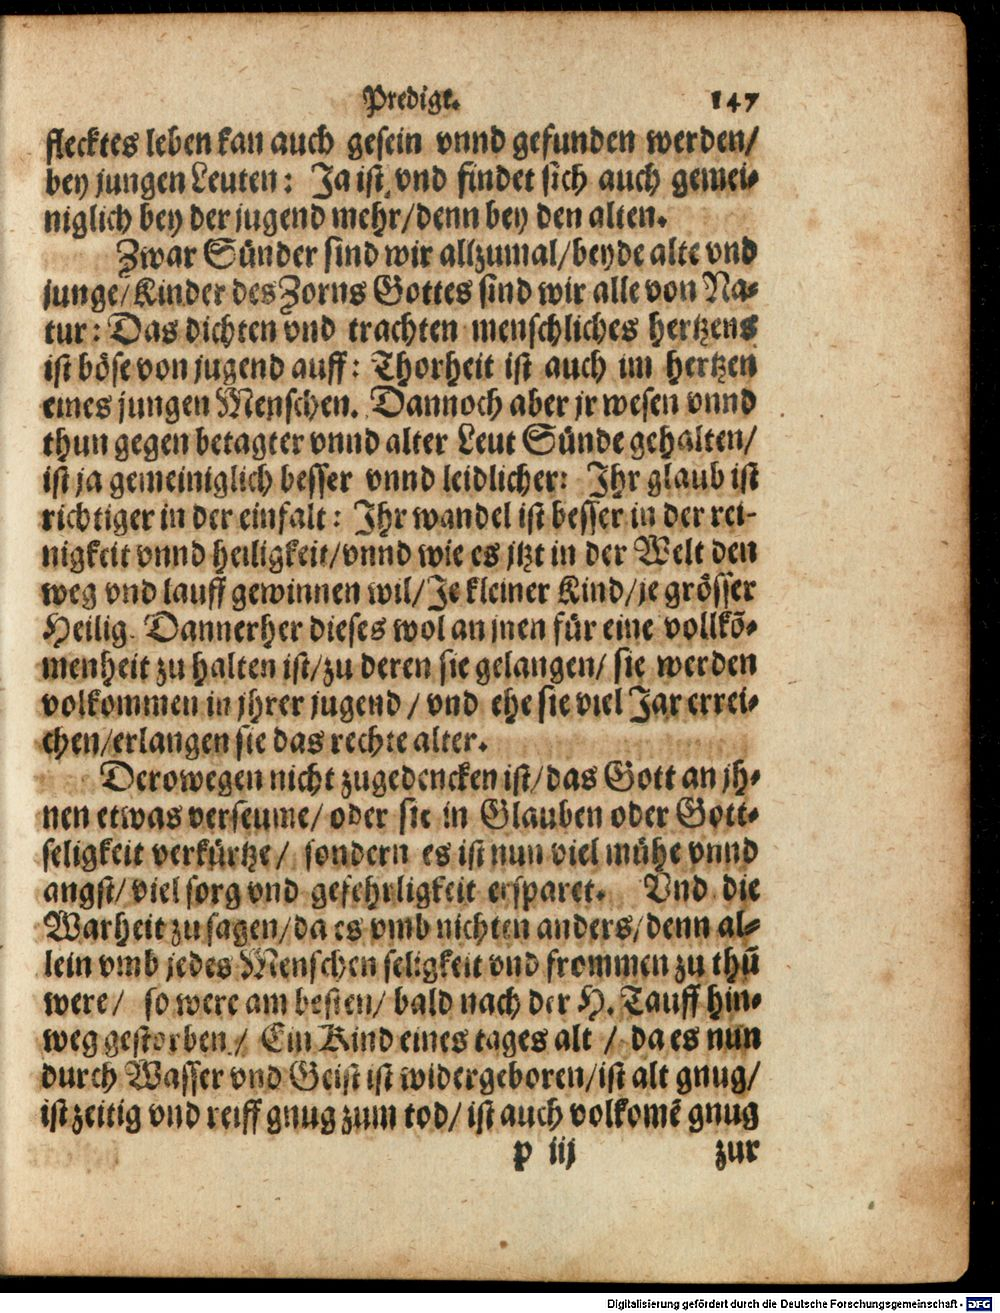 Predigt. 147
flecktes leben kan auch gesein vnnd gefunden werden/
bey jungen Leuten: Ja ist vnd findet sich auch gemei-
niglich bey der jugend mehr/denn bey den alten.
Zwar Sünder sind wir allzumal/beyde alte vnd
junge/Kinder des Zorns Gottes sind wir alle von Na-
tur: Das dichten vnd trachten menschliches hertzens
ist böse von jugend auff: Thorheit ist auch im hertzen
eines jungen Menschen. Dannoch aber jr wesen vnnd
thun gegen betagter vnnd alter Leut Sünde gehalten/
ist ja gemeiniglich besser vnnd leidlicher: Ihr glaub ist
richtiger in der einfalt: Ihr wandel ist besser in der rei-
nigkeit vnnd heiligkeit/vnnd wie es jtzt in der Welt den
weg vnd lauff gewinnen wil/Je kleiner Kind/je grösser
Heilig. Dannerher dieses wol an jnen für eine vollkõ-
menheit zu halten ist/zu deren sie gelangen/ sie werden
volkommen in jhrer jugend / vnd ehe sie viel Jar errei-
chen/erlangen sie das rechte alter.
Derowegen nicht zugedencken ist/das Gott an jh-
nen etwas verseume/ oder sie in Glauben oder Gott-
seligkeit verkürtze/ sondern es ist nun viel mühe vnnd
angst/viel sorg vnd gefehrligkeit ersparet. Vnd die
Warheit zu sagen/da es vmb nichten anders/denn al-
lein vmb jedes Menschen seligkeit vnd frommen zu thũ
were/ so were am besten/ bald nach der H. Tauff hin-
weg gestorben/ Ein Kind eines tages alt / da es nun
durch Wasser vnd Geist ist widergeboren/ist alt gnug/
ist zeitig vnd reiff gnug zum tod/ ist auch volkomẽ gnug
p iij zur
Digitalisierung gefördert durch die Deutsche Forschungsgemeinschaft - DFG